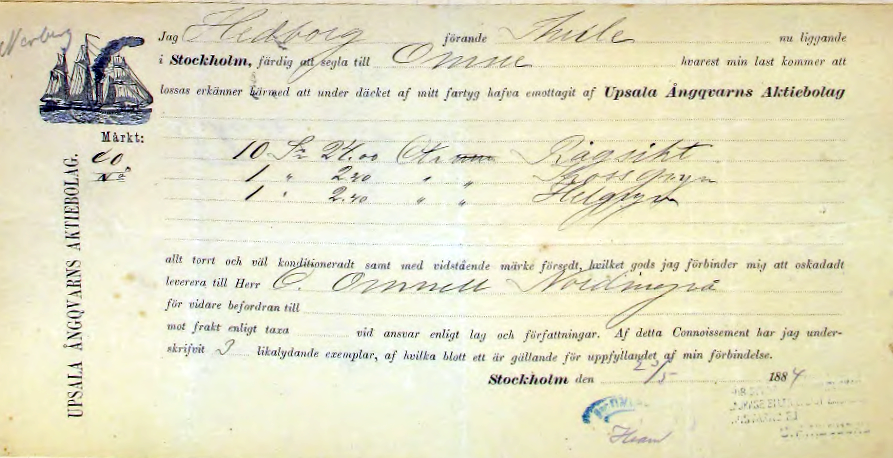 Jag Hedborg förande Thule nu liggande
i Stockholm, färdig att segla till Omne hvarest min last kommer att
lossas erkänner härmed att under däcket af mitt fartyg hafva emottagit af Upsala Ångqvarns Aktiebolag
Märkt:
CO
No
10 Sr 24.00 Ctr Rågsikt
1 " 2.40 " " Krossgryn
1 " 2.40 " " Helgryn
UPSALA ÅNGQVARNS AKTIEBOLAG.
allt torrt och väl konditioneradt samt med vidstående märke försedt, hvilket gods jag förbinder mig att oskadadt
leverera till Herr C. Nordingrå
för vidare befordran till
mot frakt enligt taxa vid ansvar enligt lag och författningar. Af detta Connoissement har jag under-
skrifvit 3 likalydande exemplar, af hvilka blott ett är gällande för uppfyllandet af min förbindelse.
Stockholm den 23/5 1884